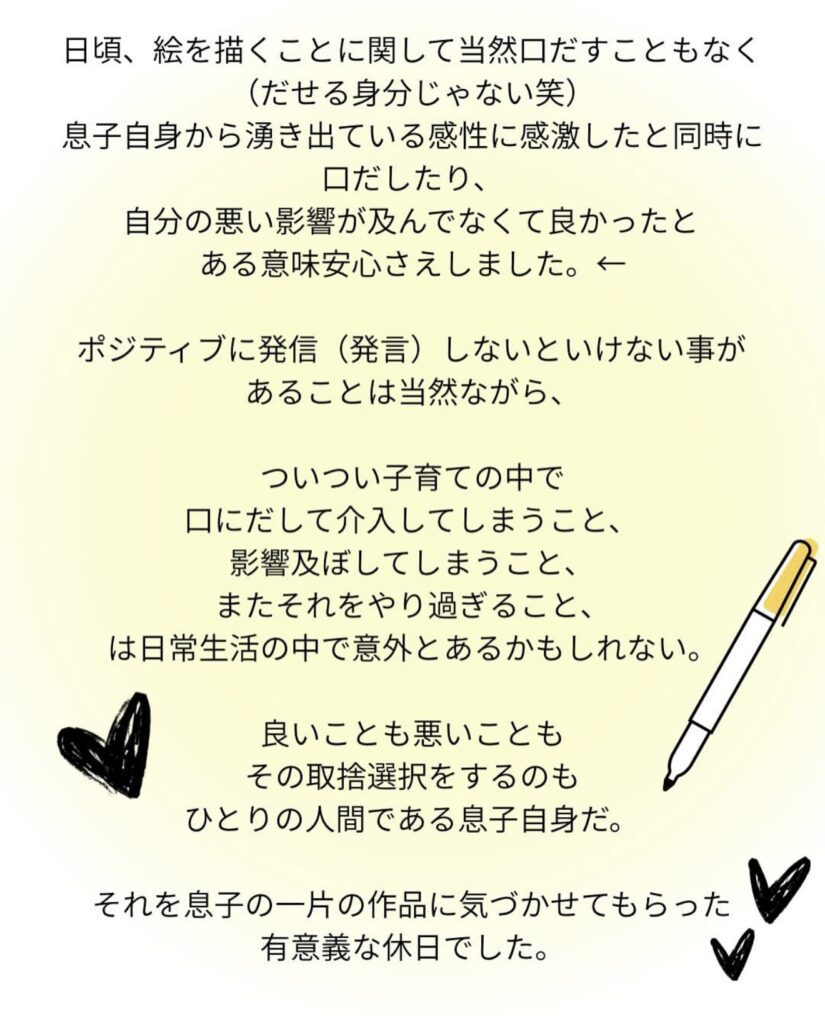 日頃、絵を描くことに関して当然口だすこともなく
（だせる身分じゃない笑）
息子自身から湧き出ている感性に感激したと同時に
口だしたり、
自分の悪い影響が及んでなくて良かったと
ある意味安心さえしました。←
ポジティブに発信（発言）しないといけない事が
あることは当然ながら、
ついつい子育ての中で
口にだして介入してしまうこと、
影響及ぼしてしまうこと、
またそれをやり過ぎること、
は日常生活の中で意外とあるかもしれない。
良いことも悪いことも
その取捨選択をするのも
ひとりの人間である息子自身だ。
それを息子の一片の作品に気づかせてもらった
有意義な休日でした。